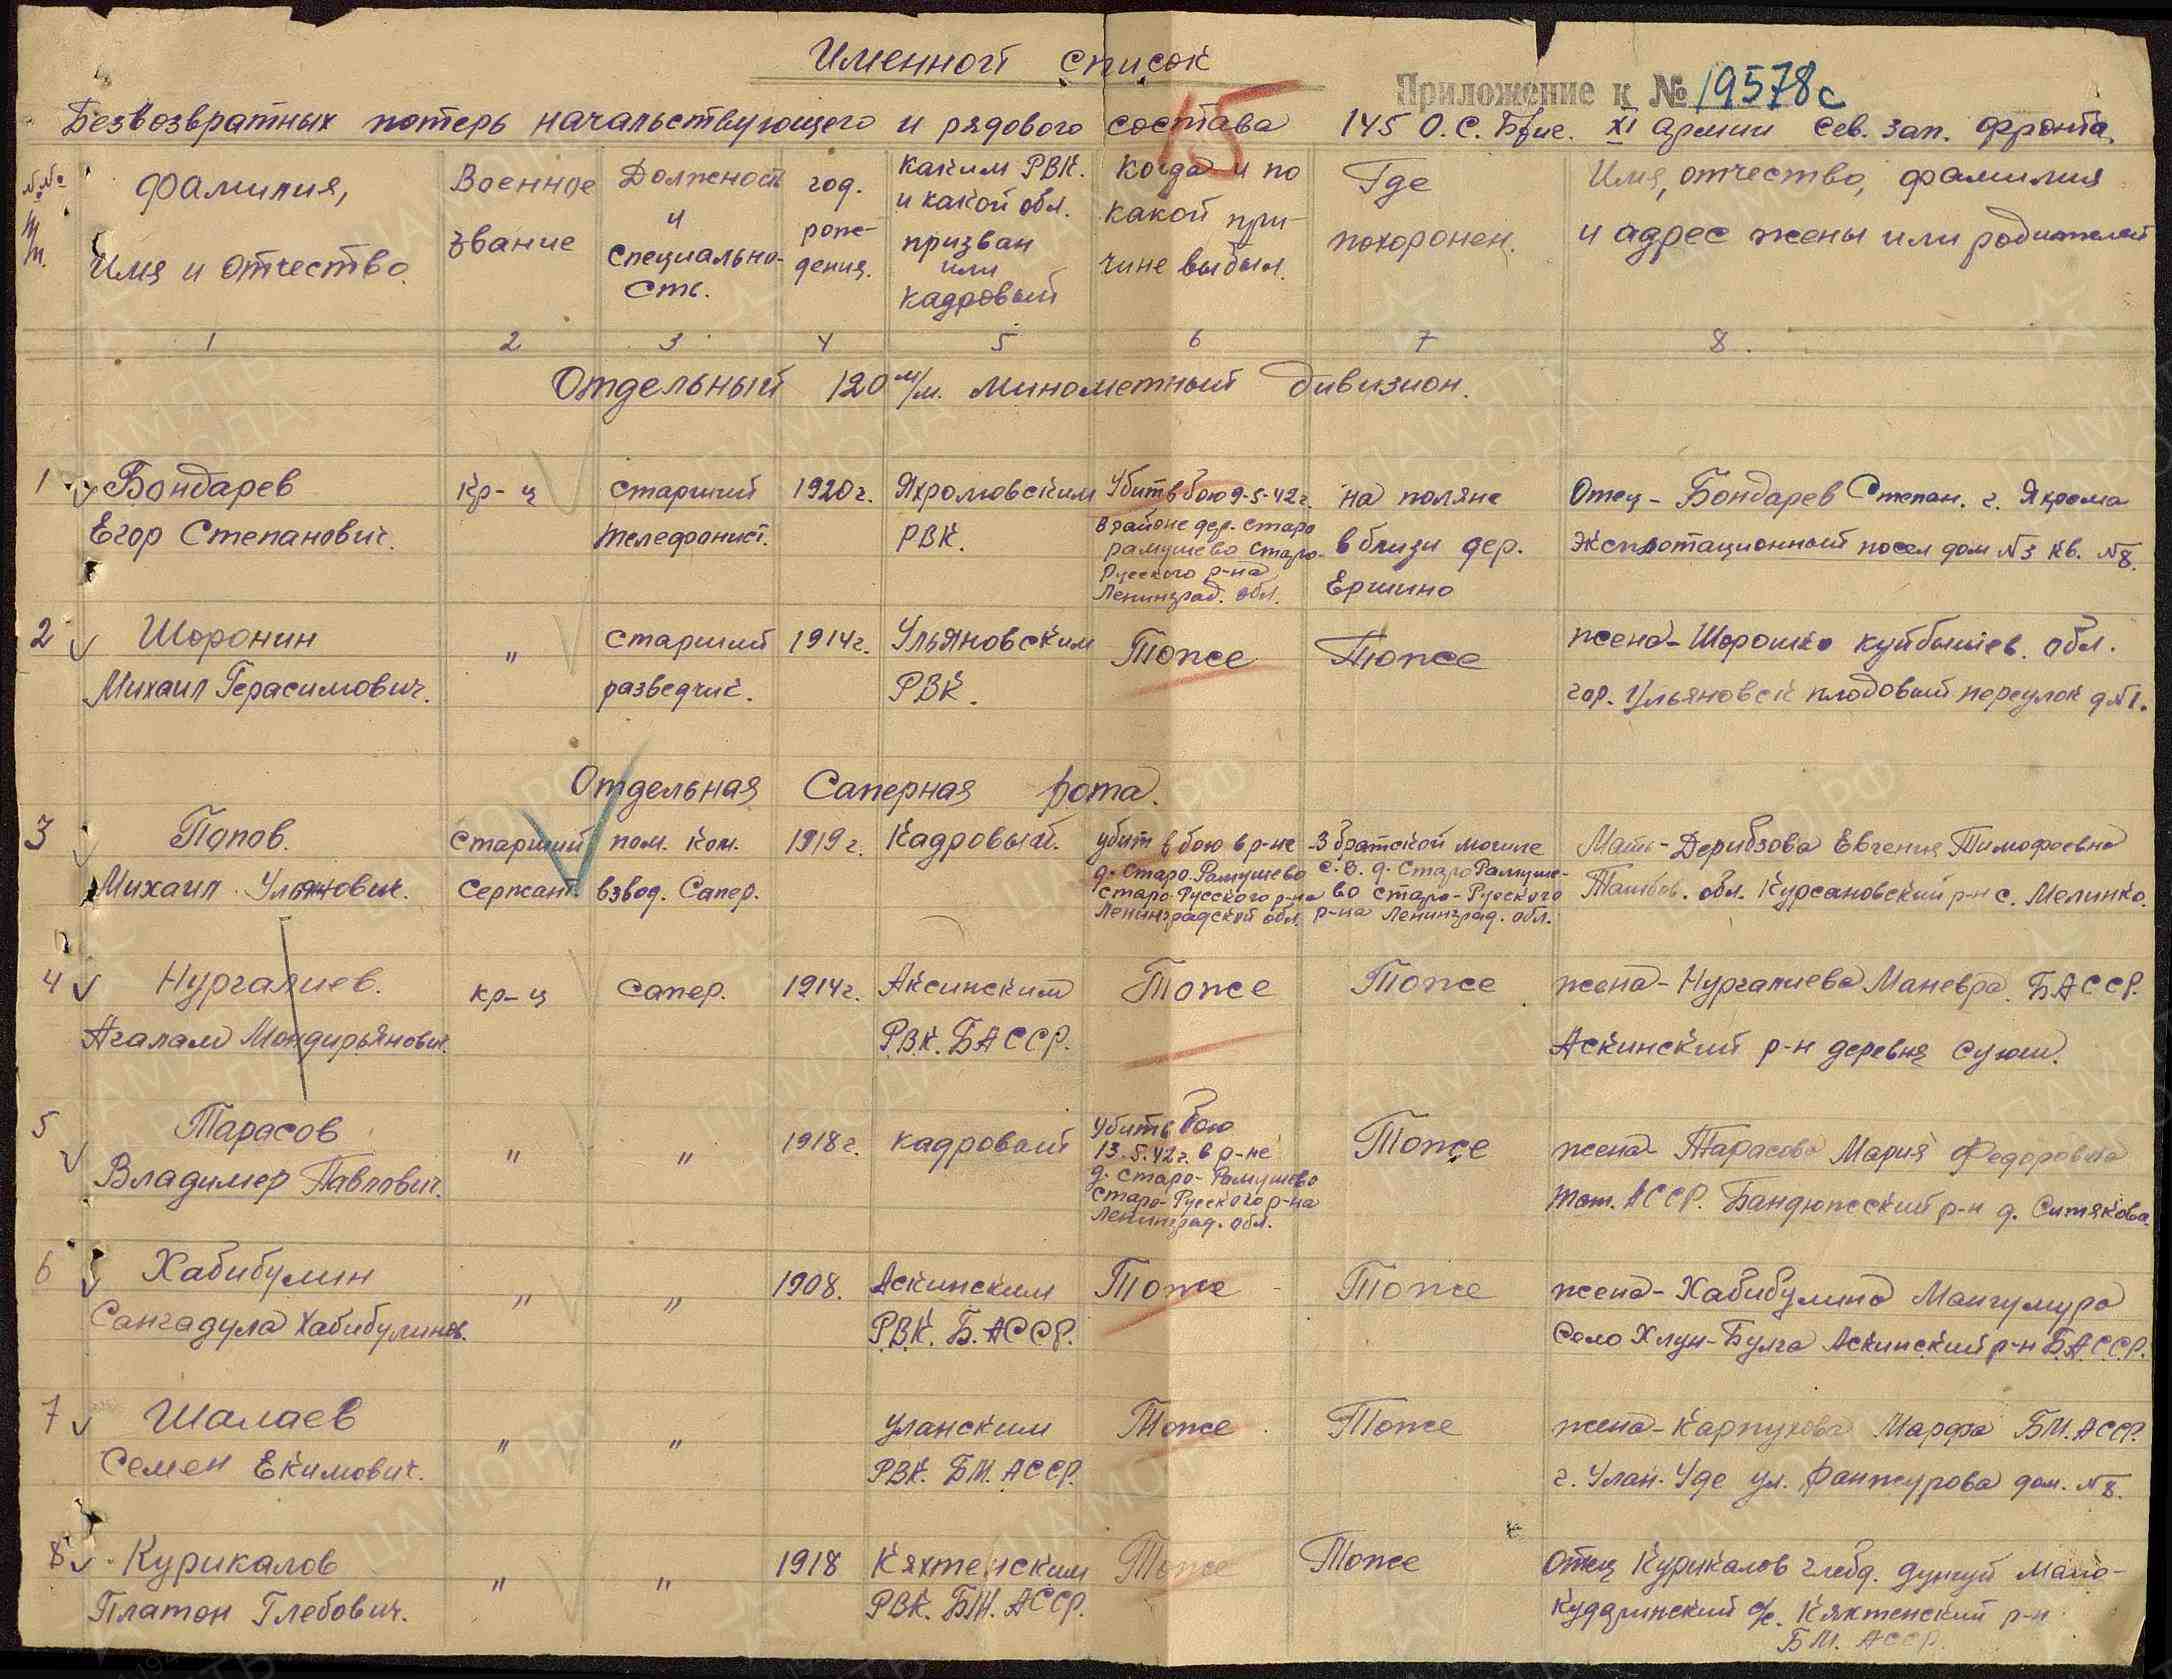 Именной список
Приложение к № 19578с
15
Безвозвратных потерь начальствующего и рядового состава 145 О.С. Бриг. XI Армии Сев. Зап. Фронта.
№№ п/п. Фамилия, Имя и отчество.
Военное звание
Должность и специальность.
год. рождения.
Каким РВК. и какой обл. призван или кадровый
Когда и по какой причине выбыл.
Где похоронен.
Имя, отчество, фамилия и адрес жены или родителей
1 2 3 4 5 6 7 8.
Отдельный 120 м/м. минометный дивизион.
1 Бондарев Егор Степанович.
Кр-ц
старший телефонист.
1920г.
Яхромовским РВК.
Убит в бою 9-5-42г. в районе дер. Старо Рамушево Старо-Русского р-на Ленинград. обл.
на поляне вблизи дер. Ершино
Отец - Бондарев Степан. г. Яхрома
Эксплотационный посел дом №3 кв. №8.
2 Шоронин Михаил Герасимович.
"
старший разведчик.
1914г.
Ульяновским РВК.
Тоже
Тоже
жена - Шорошко Куйбышев. обл.
гор. Ульяновск плодовый переулок д №1.
Отдельная Саперная рота.
3 Попов. Михаил Ульянович.
Старший Сержант.
пом. Ком. взвод. Сапер.
1919г.
Кадровый.
убит в бою в р-не д. Старо Рамушево Старо-Русского р-на Ленинградской обл.
В братской могиле с.в. д. Старо Рамушево Старо-Русского р-на Ленинград. обл.
Мать - Дерибзова Евгения Тимофеевна
Тамбов. обл. Курсановский р-н с. Мелинко.
4 Нургалиев. Агалам Мандирьянович.
кр-ц
сапер.
1914г.
Аксинским РВК. БАССР.
Тоже
Тоже
жена - Нургалиева Маневра. БАССР.
Аскинский р-н деревня Суюш.
5 Тарасов Владимер Павлович.
"
"
1918г.
кадровый
Убит в бою 13.5.42г. в р-не д. Старо-Рамушево Старо-Русского р-на Ленинград. обл.
Тоже
жена Тарасова Мария Федоровна
Тат. АССР. Бандюжский р-н д. Ситякова.
6 Хабибулин Сангадула Хабибулинов.
"
"
1908.
Аскинским РВК. Б.АССР.
Тоже
Тоже
жена - Хабибулина Мангумура
Село Хлун-Булга Аскинский р-н БАССР.
7 Шалаев Семен Екимович.
"
"
Уланским РВК. БМ. АССР.
Тоже
Тоже
жена - Карпухова Марфа БМ. АССР.
г. Улан-Уде ул. Фанжурова дом. №8.
8 Курикалов Платон Глебович.
"
"
1918
Кяхтенским РВК. БМ. АССР.
Тоже
Тоже
отец Курикалов Глеб. Дунгуй Мало-Кударинский с/с. Кяхтенский р-н
БМ. АССР.